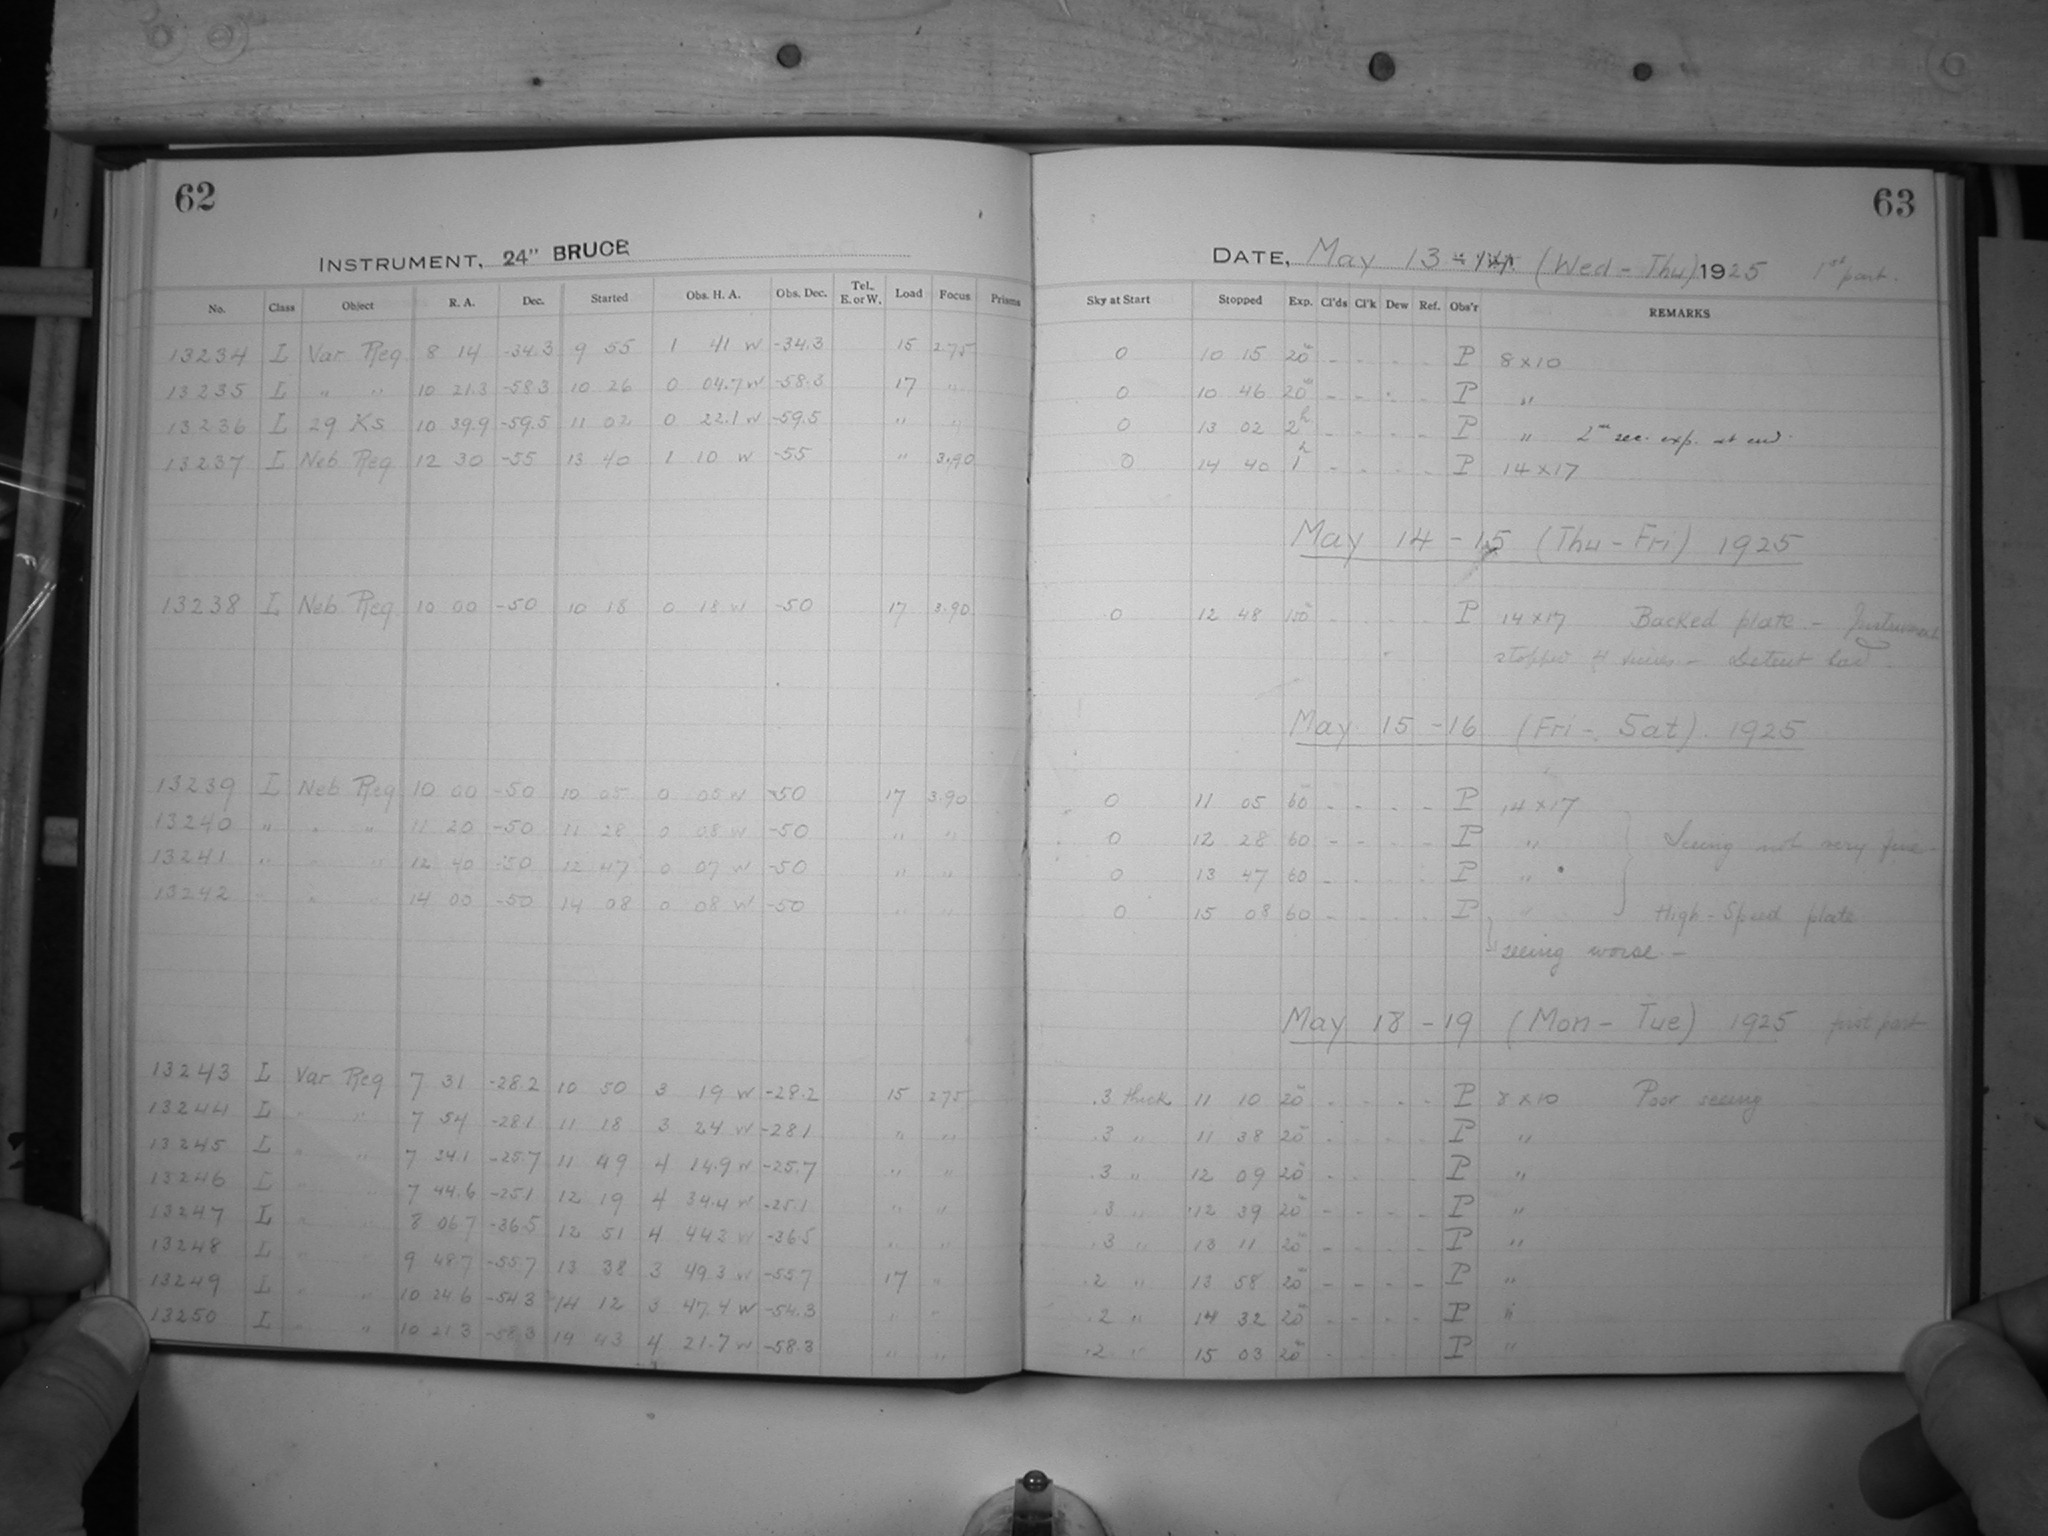 62
INSTRUMENT, 24" BRUCE
No. Class Object R. A. Dec. Started Obs. H. A. Obs. Dec. Tel. E. or W. Load Focus Prisms
13234 L Var Reg 8 14 -34.3 9 55 1 41 W -34.3 15 2.75
13235 L " " 10 21.3 -58.3 10 26 0 04.7 W -58.3 17 "
13236 L 29 Ks 10 39.9 -59.5 11 02 0 22.1 W -59.5 " "
13237 L Neb Reg 12 30 -55 13 40 1 10 W -55 " 3.90
13238 L Neb Reg 10 00 -50 10 18 0 18 W -50 17 3.90
13239 L Neb Reg 10 00 -50 10 05 0 05 W -50 17 3.90
13240 " " " 11 20 -50 11 28 0 08 W -50 " "
13241 " " " 12 40 -50 12 47 0 07 W -50 " "
13242 " " " 14 00 -50 14 08 0 08 W -50 " "
13243 L Var Reg 7 31 -28.2 10 50 3 19 W -28.2 15 275
13244 L " " 7 54 -28.1 11 18 3 24 W -28.1 " "
13245 L " " 7 34.1 -25.7 11 49 4 14.9 W -25.7 " "
13246 L " " 7 44.6 -25.1 12 19 4 34.4 W -25.1 " "
13247 L " " 8 06.7 -36.5 12 51 4 44.3 W -36.5 " "
13248 L " " 9 48.7 -55.7 13 38 3 49.3 W -55.7 17 "
13249 L " " 10 24.6 -54.3 14 12 3 47.4 W -54.3 " "
13250 L " " 10 21.3 -58.3 14 43 4 21.7 W -58.3 " "
63
DATE, May 13-14 (Wed-Thu) 1925 1st part.
Sky at Start Stopped Exp. Cl'ds Cl'k Dew Ref. Obs'r REMARKS
0 10 15 20m - - - - P 8x10
0 10 46 20m - - - - P "
0 13 02 2h - - - - P " 2m sec. exp. at end.
0 14 40 1h - - - - P 14x17
May 14-15 (Thu-Fri) 1925
0 12 48 150 - - - - P 14x17 Backed plate - Instrument
stopped 4 - Detent bad.
May 15-16 (Fri-Sat). 1925
0 11 05 60 - - - - P 14x17
0 12 28 60 - - - - P " Seeing not very fine -
0 13 47 60 - - - - P "
0 15 08 60 - - - - P " High-Speed plate
seeing worse -
May 18-19 (Mon-Tue) 1925 first part
.3 thick 11 10 20m - - - - P 8x10 Poor seeing
.3 " 11 38 20m - - - - P "
.3 " 12 09 20m - - - - P "
.3 " 12 39 20m - - - - P "
.3 " 13 11 20m - - - - P "
.2 " 13 58 20m - - - - P "
.2 " 14 32 20m - - - - P "
.2 " 15 03 20m - - - - P "